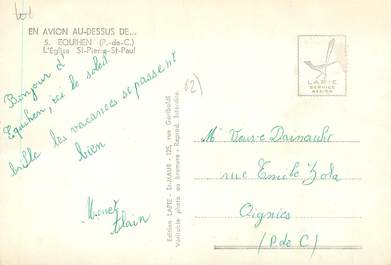 EN AVION AU-DESSUS DE...
5. EQUIHEN (P.-de-C.)
L'Eglise St-Pierre-St-Paul
Bonjour d'
Equihen, ici le soleil
brille les vacances se passent
bien
Alain
62)
Edition LAPIE - St-MAUR - 125, rue Garibaldi
Véritable photo au bromure - Reprod. Interdite
LAPIE
SERVICE
AERIEN
Me Veuve Darnault
rue Emile Zola
Oignies
(P de C)